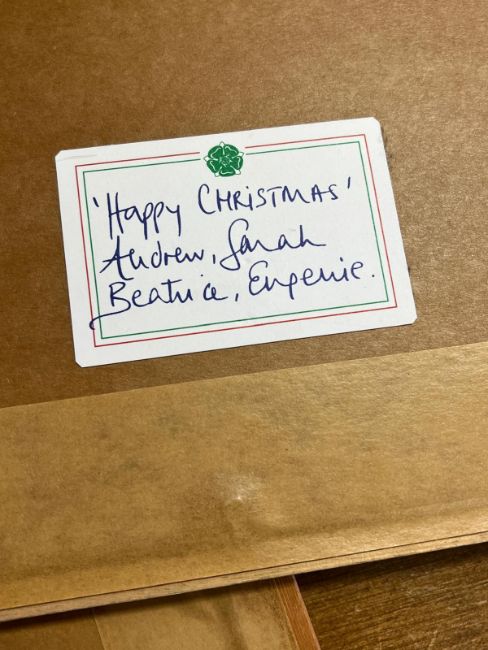 'Happy CHRISTMAS'
Andrew, Sarah
Beatrice, Eugenie.